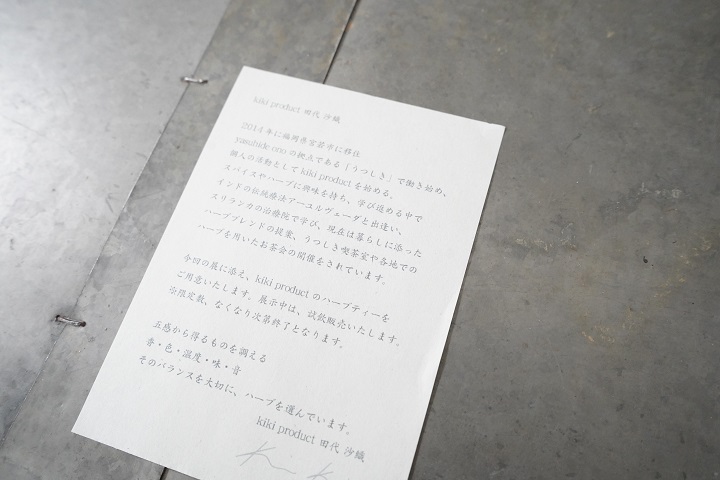 kiki product 田代 沙織
2014年に福岡県宮若市に移住
yasuhide onoの拠点である「うつしき」で働き始め、
個人の活動としてkiki productを始める。
スパイスやハーブに興味を持ち、学び進める中で
インドの伝統療法アーユルヴェーダと出逢い、
スリランカの治療院で学び、現在は暮らしに添った
ハーブブレンドの提案、うつしき喫茶室や各地での
ハーブを用いたお茶会の開催をされています。
今回の展に添え、kiki productのハーブティーを
ご用意いたします。展示中は、試飲販売いたします。
限定数、なくなり次第終了となります。
五感から得るものを調える
香・色・温度・味・音
そのバランスを大切に、ハーブを選んでいます。
kiki product 田代 沙織